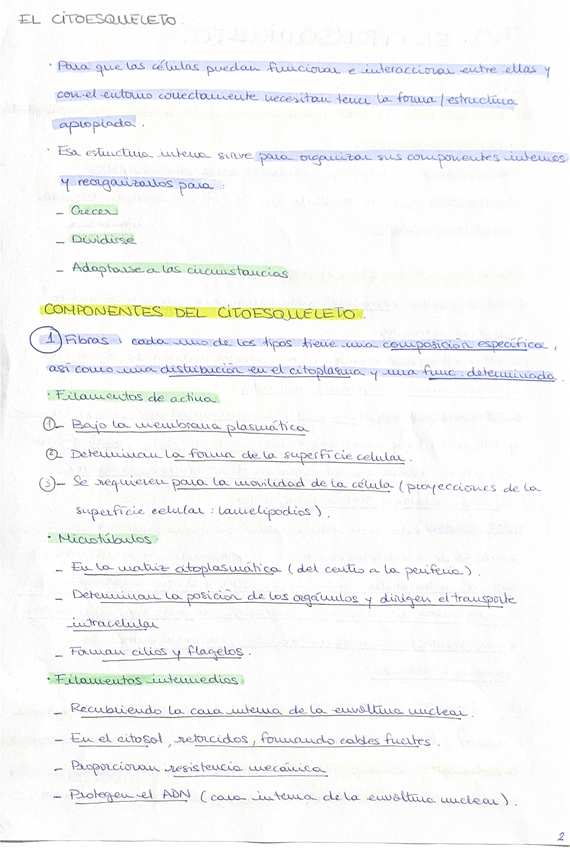 EL CITOESQUELETO.
· Para que las células puedan funcionar e interaccionar entre ellas y
con el entorno correctamente necesitan tener la forma / estructura
apropiada.
· Esa estructura interna sirve para organizar sus componentes internos
y reorganizarlos para:
- Crecer
- Dividirse
- Adaptarse a las circunstancias
COMPONENTES DEL CITOESQUELETO.
1 Fibras: cada uno de los tipos tiene una composición específica,
así como una distribución en el citoplasma y una func. determinada.
· Filamentos de actina
1- Bajo la membrana plasmática
2- Determinan la forma de la superfície celular.
3- Se requieren para la movilidad de la célula (proyecciones de la
superfície celular: lamelipodios).
· Microtúbulos
- En la matriz citoplasmática (del centro a la periferia).
- Determinan la posición de los orgánulos y dirigen el transporte
intracelular
- Forman cilios y flagelos.
· Filamentos intermedios
- Recubriendo la cara interna de la envoltura nuclear.
- En el citosol, retorcidos, formando cables fuertes.
- Proporcionan resistencia mecánica
- Protegen el ADN (cara interna de la envoltura nuclear).
2